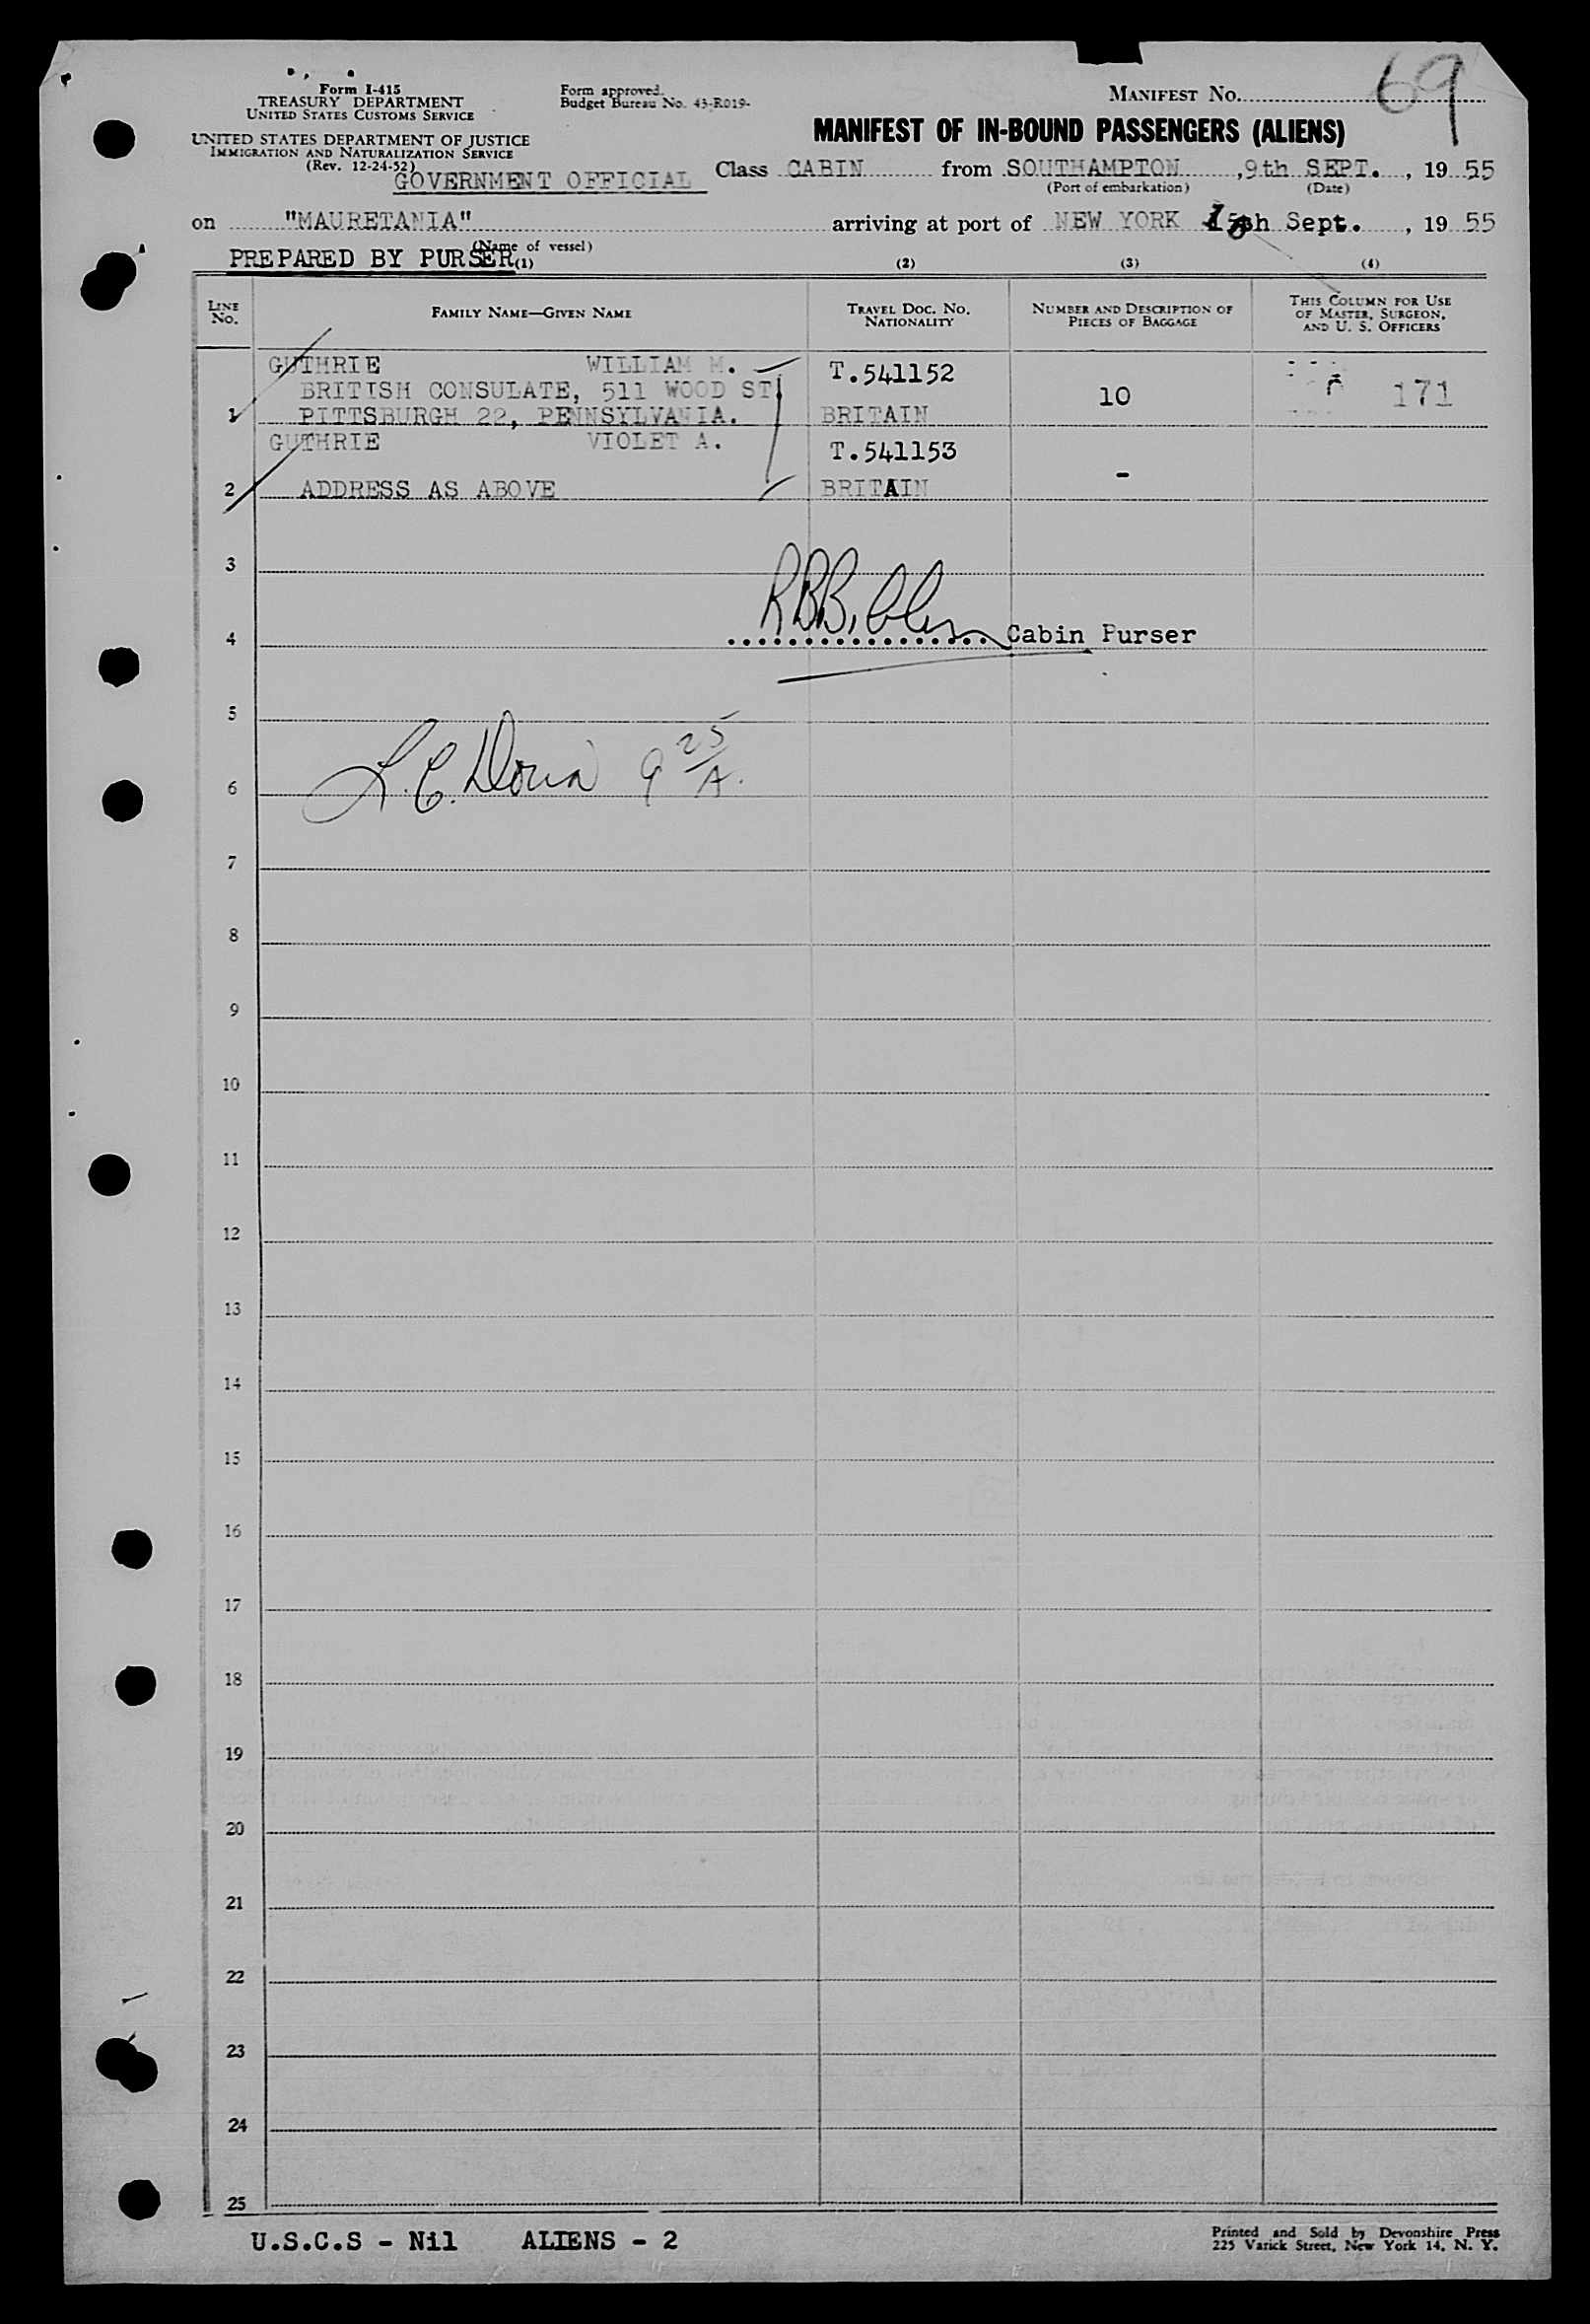 69
Form I-415
TREASURY DEPARTMENT
UNITED STATES CUSTOMS SERVICE
UNITED STATES DEPARTMENT OF JUSTICE
IMMIGRATION AND NATURALIZATION SERVICE
(Rev. 12-24-52)
Form approved.
Budget Bureau No. 43-R019-
MANIFEST No.
MANIFEST OF IN-BOUND PASSENGERS (ALIENS)
GOVERNMENT OFFICIAL
Class CABIN from SOUTHAMPTON, 9th SEPT., 1955
(Port of embarkation) (Date)
on "MAURETANIA" arriving at port of NEW YORK Sept., 1955
(Name of vessel)
PREPARED BY PURSER
(1) (2) (3) (4)
LINE No. FAMILY NAME—GIVEN NAME TRAVEL DOC. No. NATIONALITY NUMBER AND DESCRIPTION OF PIECES OF BAGGAGE THIS COLUMN FOR USE OF MASTER, SURGEON, AND U. S. OFFICERS
GUTHRIE WILLIAM M. T.541152
BRITISH CONSULATE, 511 WOOD ST 10 171
1 PITTSBURGH 22, PENNSYLVANIA. BRITAIN
GUTHRIE VIOLET A. T.541153
2 ADDRESS AS ABOVE BRITAIN -
3
4 Cabin Purser
5
6 9 25/A.
7
8
9
10
11
12
13
14
15
16
17
18
19
20
21
22
23
24
25
U.S.C.S - Nil ALIENS - 2
Printed and Sold by Devonshire Press
225 Varick Street, New York 14, N. Y.